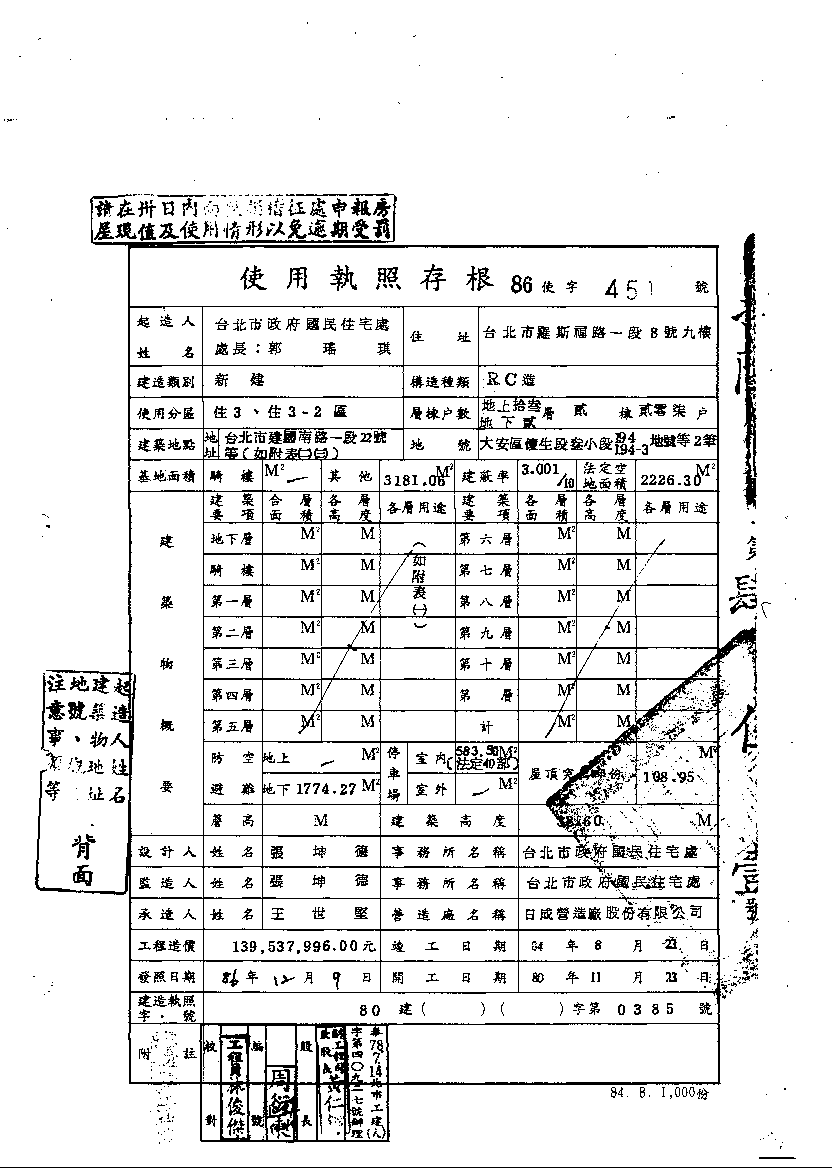 請在卅日內
征處申報房
屋現值及使用情形以免逾期受罰
使用執照存根 86 使字 451 號
起造人姓名 台北市政府國民住宅處 處長：郭瑤琪 住址 台北市羅斯福路一段8號九樓
建造類別 新建 構造種類 RC造
使用分區 住3、住3-2區 層棟户數 地上拾叁層 地下貳 貳棟 貳零柒户
建築地點 地址 台北市建國南路一段22號等(如附表㈡㈢) 地號 大安區懷生段叁小段194 194-3地號等2筆
基地面積 騎樓 M² 其他 3181.06 M² 建蔽率 3.001/10 法定空地面積 2226.30 M²
建築物概要
建築要項 合層面積 各層高度 各層用途 建築要項 各層面積 各層高度 各層用途
地下層 M² M 第六層 M² M
騎樓 M² M 第七層 M² M
第一層 M² M 第八層 M² M
第二層 M² M 第九層 M² M
第三層 M² M 第十層 M² M
第四層 M² M 第 層 M² M
第五層 M² M 計 M² M
(如附表㈠)
防空避難 地上 M² 停車場 室內 M² (法定40部) 屋頂突 198.95 M²
地下 1774.27 M² 室外 M²
簷高 M 建築高度 M
設計人 姓名 張坤德 事務所名稱 台北市政府國民住宅處
監造人 姓名 張坤德 事務所名稱 台北市政府國民住宅處
承造人 姓名 王世堅 營造廠名稱 日成營造廠股份有限公司
工程造價 139,537,996.00元 竣工日期 84年8月23日
發照日期 86年12月9日 開工日期 80年11月23日
建造執照字號 80 建( )( )字第 0385 號
附註
校對 工程員 林俊傑 編號 股長
78.7.14北市工建
84. 8. 1,000份
起造人姓名
建築物地址
地號、
注意事
等
背面
第
號